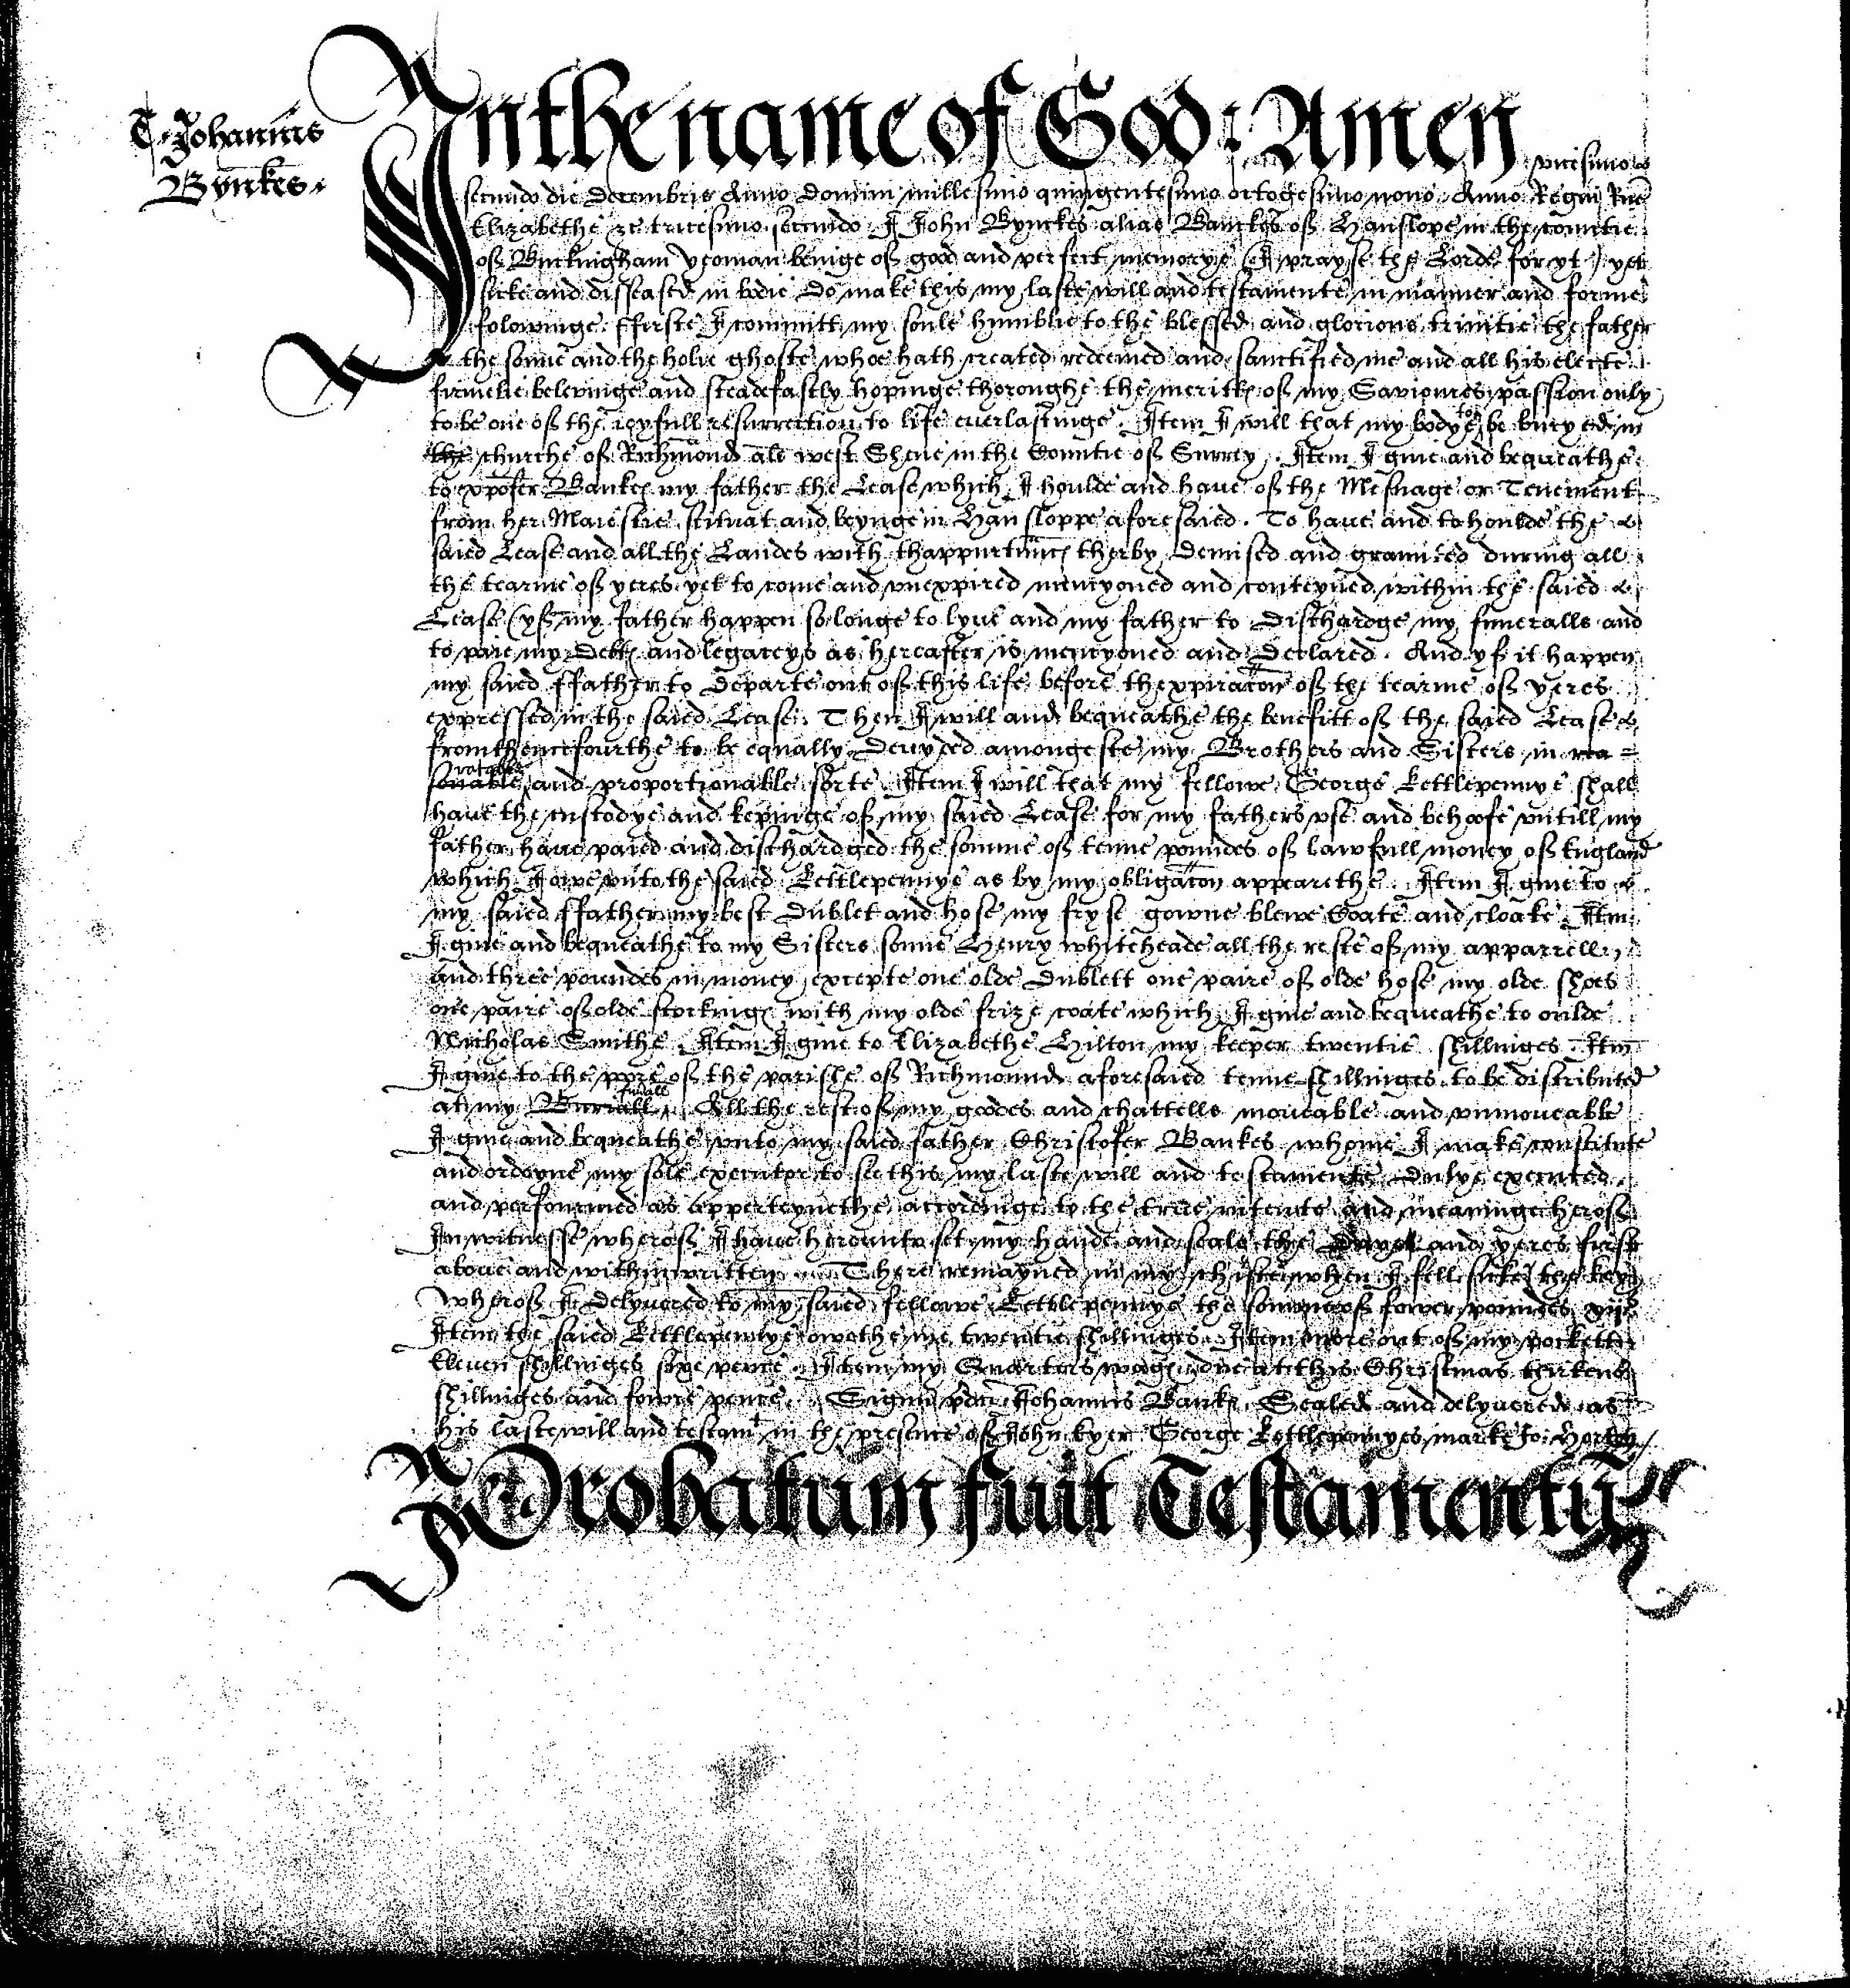 T Johannis
Bynckes
In the name of God: Amen vicesimo
secundo die Decembris Anno Domini millesimo quingentesimo octogesimo nono Anno Regni Rne
Elizabethe zc tricesimo secundo I John Bynckes alias Banckes of Hanslope in the countie
of Buckingham yeoman beinge of good and perfect memorye (I prayse the Lorde for yt) yet
sicke and disseased in bodie Do make this my laste will and testamente in manner and forme
folowinge. ffirste I committ my soule humblie to the blessed and glorious trinitie the father
the sonne and the holie ghoste whoe hath created redeemed and sanctified me and all his electe
firmelie belevinge and steadefastly hopinge thoroughe the merittes of my Saviours passion only
to be one of the ioyfull resurrection to life euerlastinge. Item I will that my bodye to be buryed in
the churche of Richmond als west Shene in the Countie of Surrey. Item I giue and bequeathe
to xpofer Bankes my father the Lease which I houlde and haue of the Mesuage or Tenement
from her Maiestie scituat and beynge in Hansloppe aforesaied. To haue and to houlde the
saied Lease and all the Landes with thappurtunces therby demised and graunted during all
the tearme of yeres yet to come and vnexpired mencyoned and conteyned within the saied
Lease (yf my father happen so longe to lyue and my father to dischardge my funeralls and
to paie my debtes and legacys as hereafter is mencyoned and declared. And yf it happen
my saied ffather to departe out of this life before thexpiracon of the tearme of yeres
expressed in the saied Lease. Then I will and bequeathe the benefitt of the saied Lease
from thencefourthe to be equally devyded amongeste my Brothers and Sisters in rea=
sonable ratable and proportionable sorte. Item I will that my fellowe George Kettlepennye shall
haue the custodye and kepinge of my saied Lease for my fathers vse and behoofe vntill my
father haue paied and dischardged the somme of tenne poundes of lawfull money of England
which I owe vnto the saied Kettlepennye as by my obligacon appearethe. Item I giue to
my saied ffather my best dublet and hose my fryse gowne blewe Coate and cloake. Itm
I giue and bequeathe to my Sisters sonne Henry whiteheade all the reste of my apparrell,
and three poundes in money, excepte one olde dublett one paire of olde hose my olde shoes
one paire of olde stockings with my olde frize coate which I giue and bequeathe to oulde
Nicholas Smithe. Item I giue to Elizabethe Hilton my keeper twentie shillinges. Itm
I giue to the pore of the parishe of Richmounde aforesaied tenne shillinges to be distributed
at my Buriall funerall. All the rest of my goodes and chattells moueable and vnmoueable
I giue and bequeathe vnto my saied father Christofer Bankes whome I make constitute
and ordeyne my sole executor to see this my laste will and testamente dulye executed
and perfourmed as apperteynethe accordinge to the true intente and meaninge herof
In witnesse wherof I haue herunto set my hande and seale the daye and yeres first
aboue and within written. There remayned in my chiste when I fell sicke (the key
wherof I delyuered to my saied fellowe Kettlepennye the somme of fower poundes
Item the saied Kettlepennye owethe me twentie shillinges. Item more out of my pockett
Eleuen shillinges sixe pence. Item my Quarters wages due at this Christmas thirtene
shillinges and fowre pence. Signum pdci Johannis Bankes. Sealed and delyuered as
his laste will and testamt in the presence of John kyer George Kettlepennyes marke Jo: Horton
Probatum fuit Testamentum